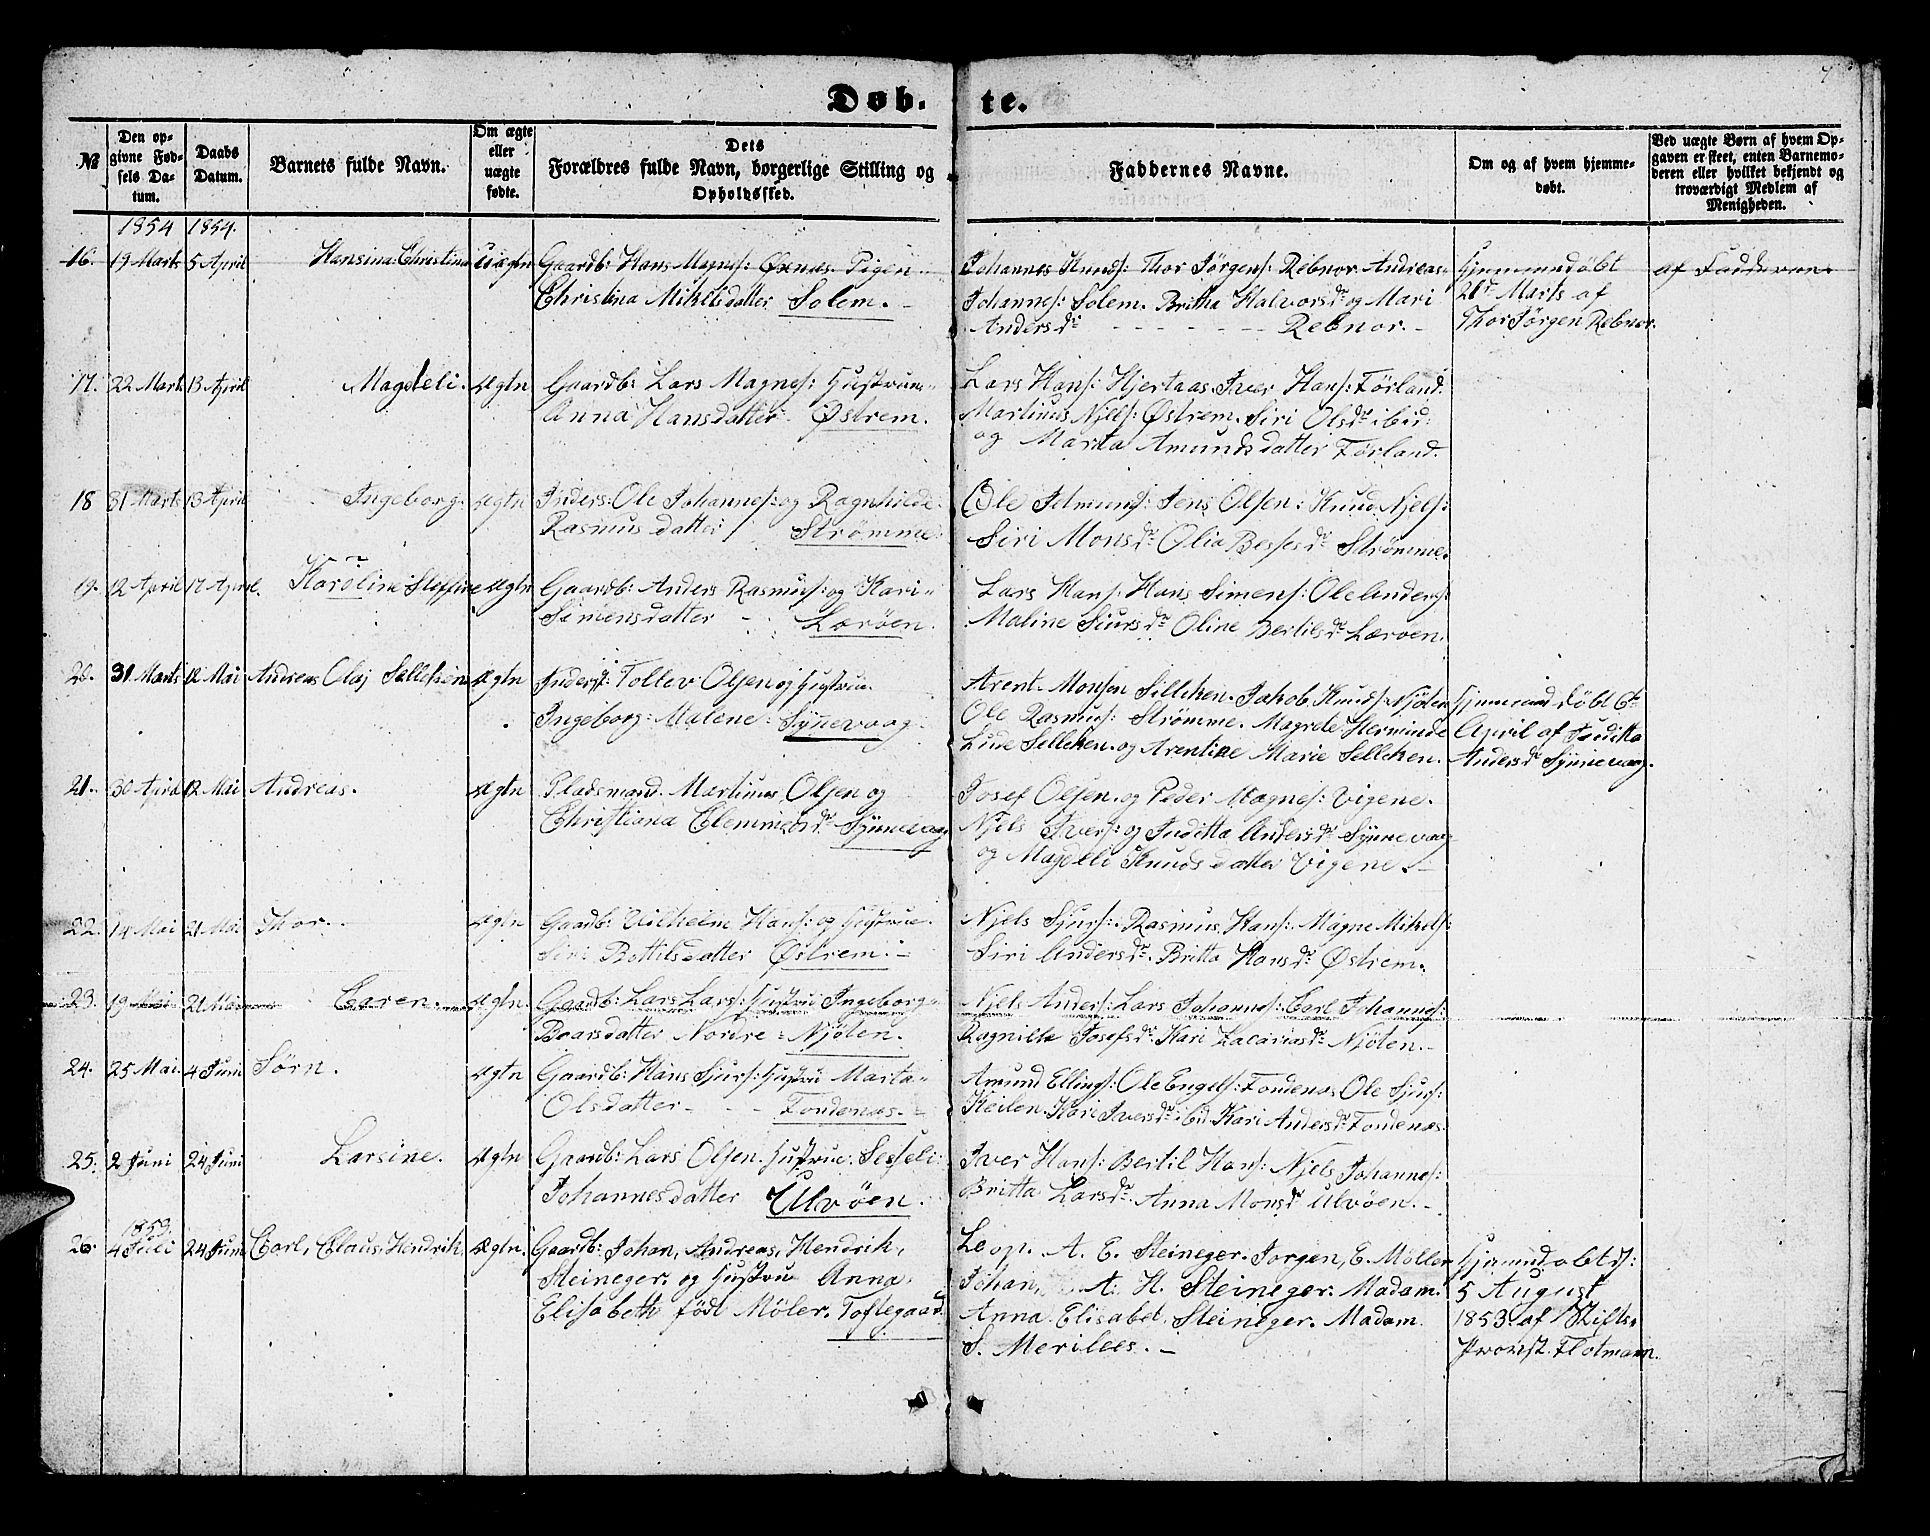 7
Døb- te.
№
Den op-
givne Fød-
sels Da-
tum.
Daabs
Datum.
Barnets fulde Navn.
Om ægte
eller
uægte
fødte.
Dets
Forældres fulde Navn, borgerlige Stilling og
Opholdssted.
Faddernes Navne.
Om og af hvem hjemme-
døbt.
Ved uægte Børn af hvem Op-
gaven er skeet, enten Barnemo-
deren eller hvilket bekjendt og
troværdigt Medlem af
Menigheden.
1854 1854.
16. 19 Marts 5 April Hansina Christina Uægtn Gaardb: Hans Magnes: Øxnæs. Pigen
Christina Mikelsdatter Solem.
Johannes Knuds: Thor Jørgens: Rebnor Andreas
Johannes: Solem. Britha Halvorsdr og Mari
Andersdr - - - - - Rebnor.
Hjemmedøbt
21de Marts af
Thor Jørgen Rebnor.
af Fadderene
17. 22 Marts 13 April Magdeli. Ægtn Gaardb: Lars Magnes: Hustrue
Anna Hansdatter Østrem.
Lars Hans: Hjertaas. Iver Hans: Førland.
Martinus Njels: Østrem. Siri Olsdr ibid:
og Marta Amundsdatter Førland.
18 31 Marts 13 April Ingeborg. Ægtn Inders: Ole Johannes: og Ragnhilde
Rasmusdatter Strømme.
Ole Jetmunds: Jens Olsen: Knud Njels:
Siri Monsdr Olia Bessesdr Strømme.
19. 12 April 17 April. Karoline Steffine Ægtn Gaardb: Anders Rasmus: og Kari
Simensdatter Lærøen.
Lars Hans: Hans Simens: Ole Anders:
Maline Siursdr Oline Bertilsdr Lærøen.
20. 31 Marts 12 Mai Andreas Olaj Selleken Ægtn Inders: Tollev Olsen og Hustrue
Ingeborg Malene Synnevaag.
Arent Monsen Selleken. Jakob Knuds: Njøten
Ole Rasmus: Strømme. Magrete Herminde
Lude Selleken. og Arentine Marie Selleken.
Hjemmedøbt 6te
April af Juditta
Andersdr Synnevaag.
21. 30 April 12 Mai Andreas. Ægtn Pladsmand Martinus Olsen og
Christiana Clemmetsdr Synnevaag
Josef Olsen. og Peder Magnes: Vigene.
Njels Ivers: og Juditta Andersdr Synnevaag
og Magdeli Knudsdatter Vigene.
22. 14 Mai 21 Mai Thor. Ægtn Gaardb: Vilhelm Hans: og Hustrue
Siri Bottilsdatter Østrem.
Njels Sjurs: Rasmus Hans: Magne Mikels:
Siri Andersdr. Britta Hansdr Østrem.
23. 19 Mai 21 Mai Caren. Ægtn. Gaardb: Lars Lars: Hustrü Ingeborg
Baarsdatter Nordre Njøten.
Njels Anders: Lars Johannes: Carl Johannes:
Ragnilde Josefsdr. Kari Zacariasdr Njøten.
24. 25 Mai 4 Juni Sørn. Ægtn Gaardb: Hans Sjurs: Hustrü Marta
Olsdatter Fondenæs.
Amund Ellings: Ole Engels: Fondenæs Ole Sjurs:
Keilen. Kari Iversdr ibid. Kari Andersdr Fondenæs.
25. 2 Juni 24 Juni Larsine. Ægtn Gaardb: Lars Olsen. Hustrue Sesseli
Johannesdatter Ulvøen.
Iver Hans: Bertil Hans: Njels Johannes:
Britta Larsdr. Anna Monsdr Ulvøen.
1853.
26. 4 Juli 24 Juni Carl, Claus, Hendrik, Ægtn. Gaardb: Johan, Andreas, Hendrik,
Steineger. og Hustru Anna
Elisabeth født Møler. Toftegaard.
Leop. A. E. Steineger. Jorgen, E. Møller
Johan, A. H. Steineger. Madam.
Anna Elisabet Steineger. Madam
S. Merilees.
Hjemdøbt d:
5 August
1853. af Stifts-
Provst. Flotmann.